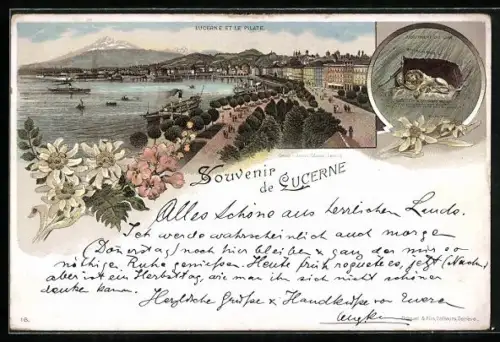 LUCERNE ET LE PILATE
Souvenir
de LUCERNE
Alles Schöne aus herrlichen Lande.
Ich werde wahrscheinlich auch morgen
(Donnerstag) noch hier bleiben & ganz der mir so
nöthigen Ruhe geniessen. Heute früh regnete es, jetzt (Nachm.)
aber ist ein Herbsttag, wie man ihn sich nicht schöner
denken kann.
Herzliche Grüsse & Handküsse von Eurem